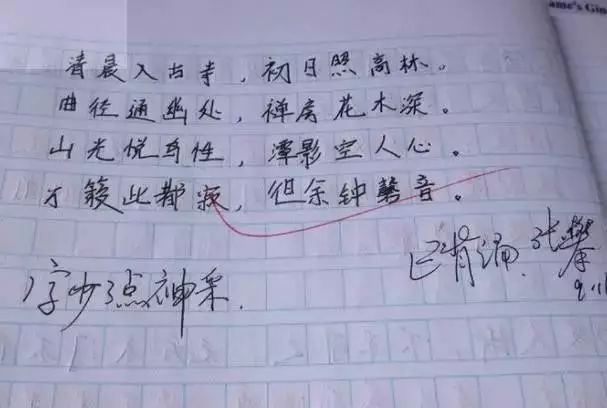 ame's Gin
清晨入古寺，初日照高林。
曲径通幽处，禅房花木深。
山光悦鸟性，潭影空人心。
万籁此都寂，但余钟磬音。
已背诵. 张
字少点神采.